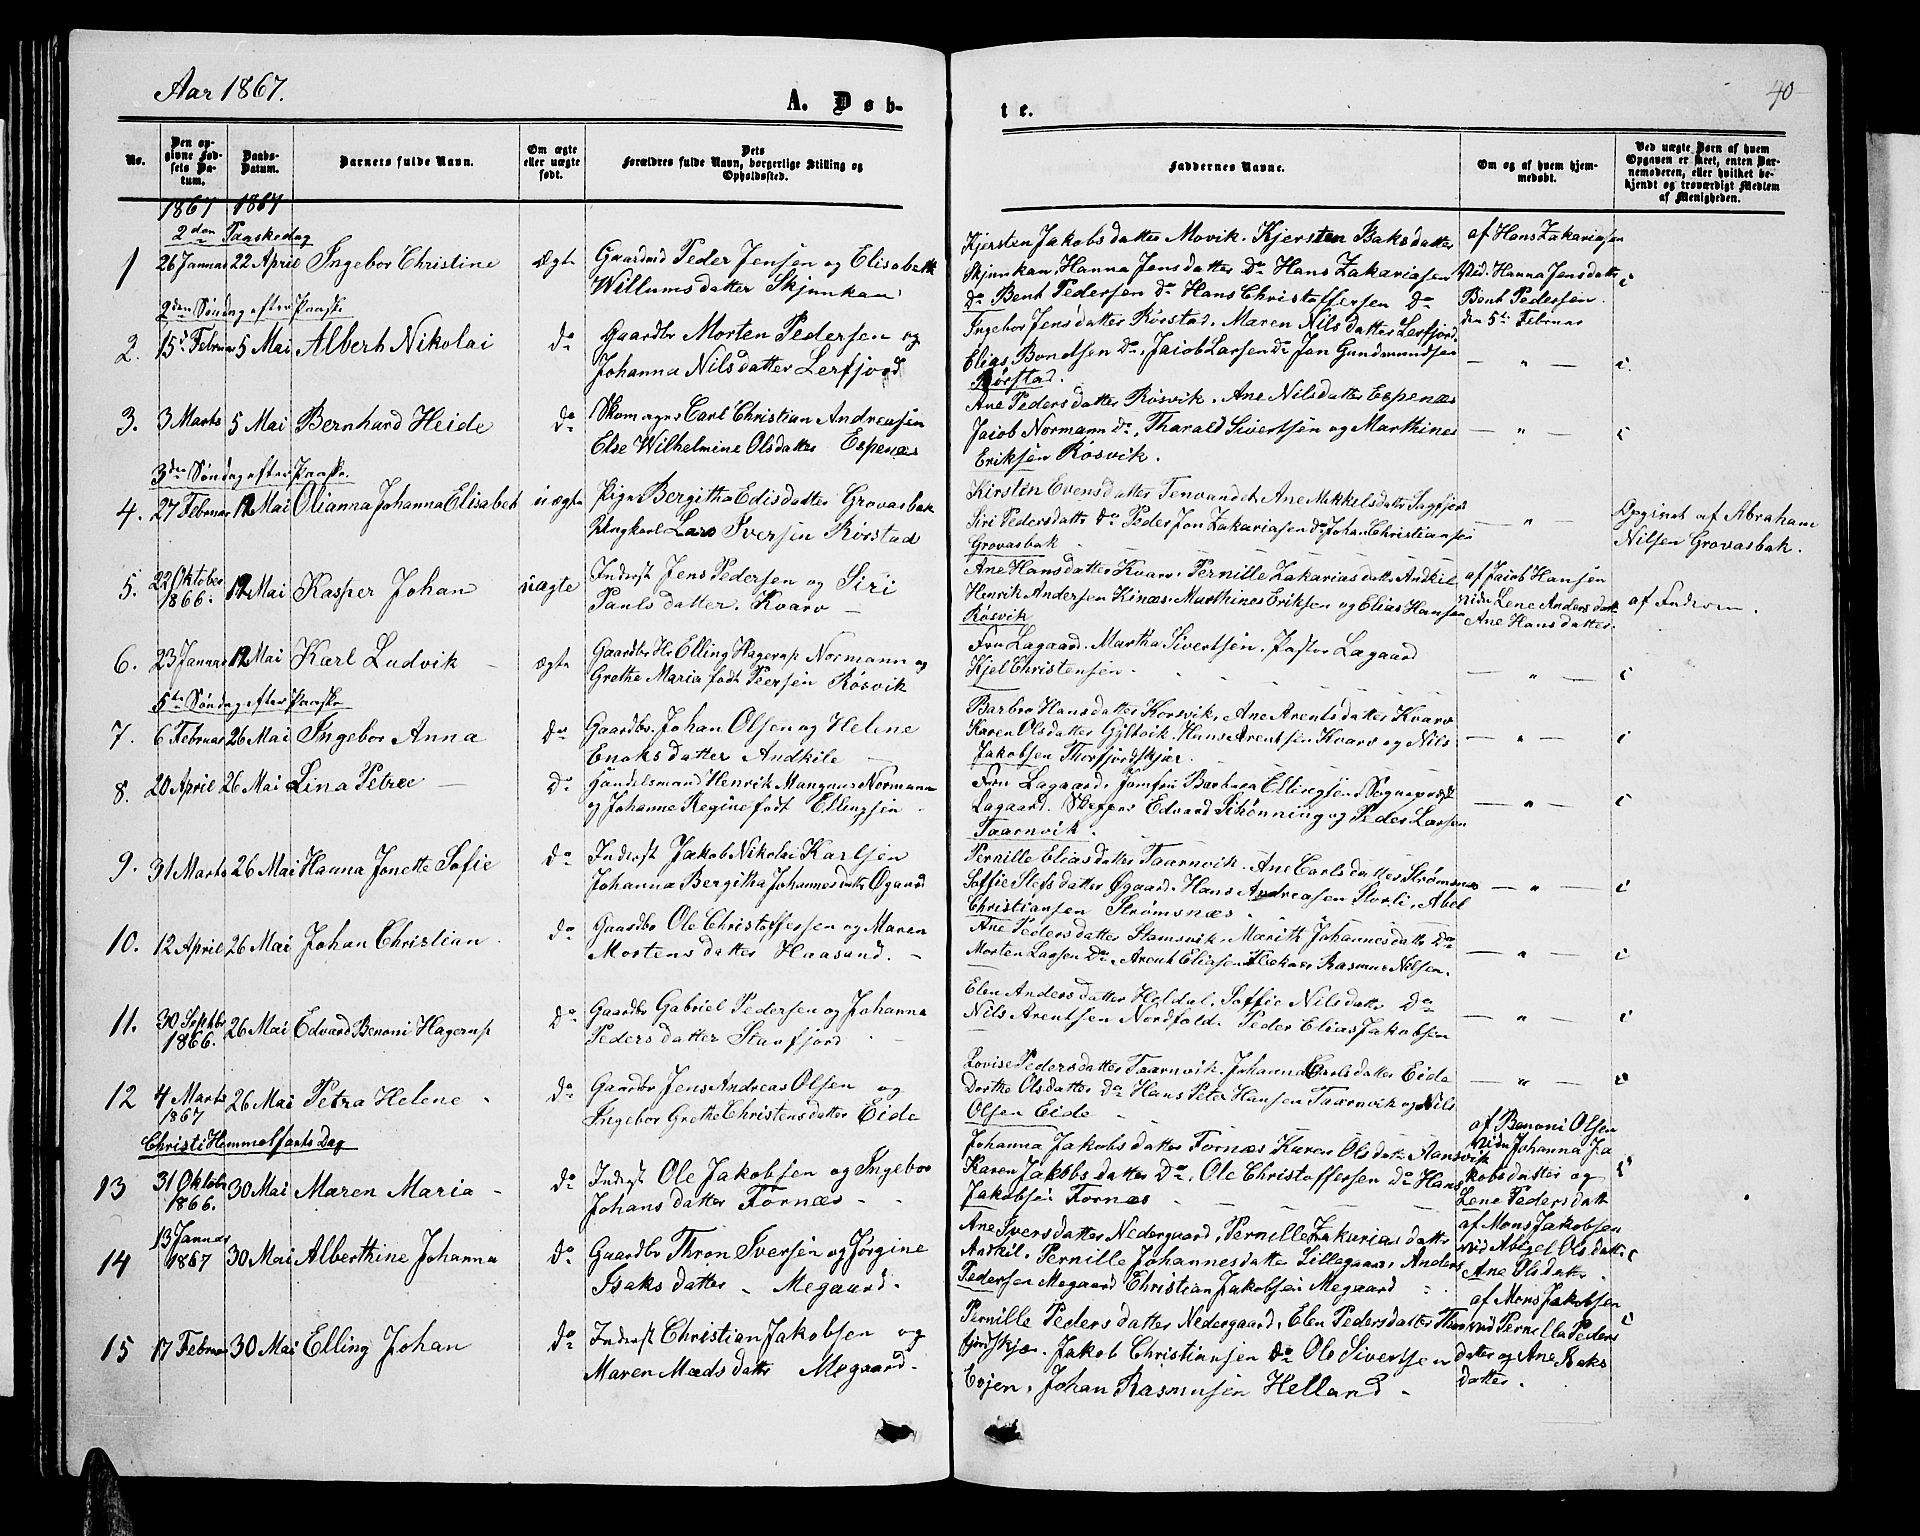 Aar 1867.
A. Døb-
te.
40
No.
Den op-
givne Fød-
sels Da-
tum.
Daabs-
Datum.
Barnets fulde Navn.
Om ægte
eller uægte
født.
Dets
Forældres fulde Navn, borgerlige Stilling og
Opholdssted.
Faddernes Navne.
Om og af hvem hjem-
medøbt.
Ved uægte Børn af hvem
Opgaven er skeet, enten Bar-
nemoderen, eller hvilket be-
kjendt og troværdigt Medlem
af Menigheden.
1867 1867
2den Paaskedag
1 26 Januar 22 April Ingebor Christine ægte
Gaardmd Peder Jensen og Elisabeth
Willumsdatter Skjunkan
Kjersten Jakobsdatter Movik. Kjersten Baksdatter
Skjunkan, Hanna Jensdatter Do Hans Zakariasen
Do Bent Pedersen Do Hans Christoffersen Do
af Hans Zakariasen
Vid. Hanna Jensdatter
Bent Pedersen
den 5te Februar
2den Søndag efter Paaske
2. 15 Februar 5 Mai Albert Nikolai Do
Gaardbr Morten Pedersen og
Johanna Nilsdatter Lerfjord
Ingebor Jensdatter Rørstad, Maren Nilsdatter Lerfjord,
Elias Bendtsen Do, Jacob Larsen Do Jon Gundmundsen
Rørstad.
3. 3 Marts 5 Mai Bernhard Heide Do
Skomager Carl Christian Andreasen
Else Wilhelmine Olsdatter Espenæs
Ane Pedersdatter Røsvik. Ane Nilsdatter Espenæs
Jacob Normann Do, Tharald Sivertsen og Marthines
Eriksen Røsvik.
3die Søndag efter Paaske.
4. 27 Februar 12 Mai Olianna Johanna Elisabet uægte
Pige Bergitha Edisdatter Grovasbak
Ungkarl Lars Iversen Rørstad
Kirsten Evensdatter Tenvandet, Ane Mikkelsdatter Sagfjord
Siri Pedersdatter Do Peder Jon Zakariasen Do Johan Christiansen
Grovasbak
Opgivet af Abraham
Nilsen Grovasbak.
5. 22 Oktober
1866. 12 Mai Kasper Johan uægte
Inderst Jens Pedersen og Siri
Paulsdatter. Kvarv
Ane Hansdatter Kvarv, Pernille Zakariasdatter Andkil
Henrik Andersen Kinæs. Marthines Eriksen og Elias Hansen
Røsvik
af Jacob Hansen
vidn Lene Andersdatt
Ane Hansdatter.
af Faderen.
6. 23 Januar 12 Mai Karl Ludvik ægte
Gaardbr Hr Elling Hagerup Normann og
Grethe Maria født Peersen Røsvik
Fru Lagaard. Martha Sivertsen, Pastor Lagaard
Kjel Christensen
5te Søndag efter Paaske
7. 6 Februar 26 Mai Ingebor Anna Do
Gaardbr. Johan Olsen og Helene
Enoksdatter Andkile
Barbro Hansdatter Korsvik, Ane Arentsdatter Kvarv
Karen Olsdatter Gyltvik. Hans Arentsen Kvarv og Nils
Jakobsen Thorfjordskjær.
8. 20 April 26 Mai Lina Petrée Do
Handelsmand Henrik Mangnus Normann
og Johanne Regine født Ellingsen
Fru Lagaard, Jomfru Barbara Ellingsen, Sogneprest
Lagaard. Skipper Edvard Schønning og Peder Larsen
Taarnvik.
9. 31 Marts 26 Mai Hanna Jonette Sofie Do
Inderst Jakob Nikolai Karlsen
Johanna Bergitha Johannesdatter Øgaard
Pernille Eliasdatter Taarnvik. Ane Carlsdatter Strømsnæs
Soffie Stefsdatter Øgaard. Hans Andreasen Storli, Abel
Christiansen Strømsnæs.
10. 12 April 26 Mai Johan Christian Do
Gaardbr Ole Christoffersen og Maren
Mortensdatter Haasand.
Ane Pedersdatter Stamsvik, Marith Johannesdatter Do
Morten Larsen Do, Arent Eliasen Rasmus Nilsen.
11. 30 Septbr
1866. 26 Mai Edvard Benoni Hagerup Do
Gaardbr Gabriel Pedersen og Johanna
Pedersdatter Stavfjord
Elen Andersdatter Holdal. Soffie Nilsdatter Do
Nils Arentsen Nordfold. Peder Elias Jakobsen
12 4 Marts
1867 26 Mai Petra Helene Do
Gaardbr Jens Andreas Olsen og
Ingebor Grethe Christensdatter Eide
Lovise Pedersdatter Taarnvik. Johanna Carlsdatter Eide
Dorthe Olsdatter Do Hans Peter Hansen Taarnvik og Nils
Olsen Eide
Christi Hemmelfarts Dag
13 31 Oktober
1866. 30 Mai Maren Maria Do
Inderst Ole Jakobsen og Ingebor
Johansdatter Fornæs
Johanna Jakobsdatter Fornæs Karen Olsdatter Aansvik
Karen Jakobsdatter Do, Ole Christoffersen Do Hans
Jakobsen Fornæs
af Benoni Olsen
vidn Johanna Ja
kobsdatter og
Lene Pedersdatt
14 13 Januar
1867 30 Mai Alberthine Johanna Do
Gaardbr Thron Iversen og Jørgine
Isaksdatter Megaard.
Ane Iversdatter Nedergaard, Pernille Zakariasdatter
Andkil. Pernille Johannesdatter Lillegaard, Anders
Pedersen Megaard Christian Jakobsen Megaard
af Mons Jakobsen
vid Abigel Olsdatter
Ane Olsdatter
15 17 Februar 30 Mai Elling Johan Do
Inderst Christian Jakobsen og
Maren Madsdatter Megaard.
Pernille Pedersdatter Nedergaard, Elen Pedersdatter Thor
fjordskjær. Jakob Christiansen Do Ole Sivertsen
Evjen, Johan Rasmusen Helland
af Mons Jakobsen
vid Pernille Peders
datter og Ane Isaks
datter.